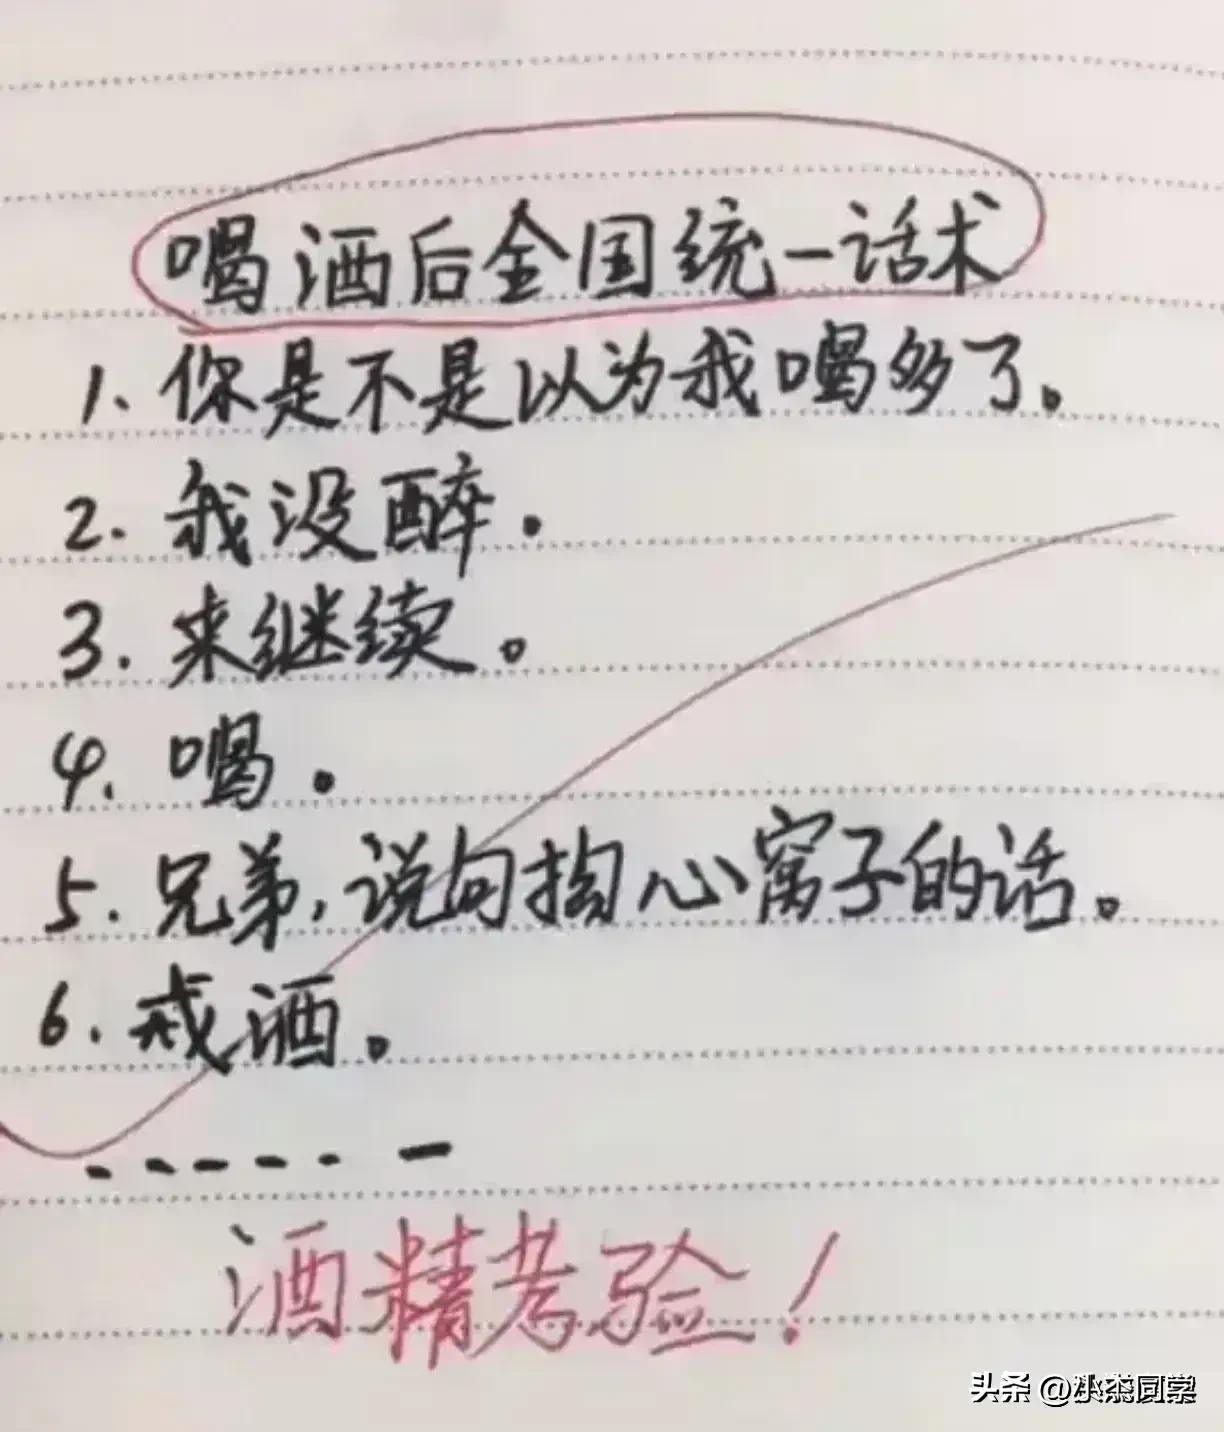 喝酒后全国统一话术
1、你是不是以为我喝多了。
2.我没醉。
3.来继续。
4.喝。
5.兄弟,说句掏心窝子的话。
6.戒酒。
酒精考验!
头条 @